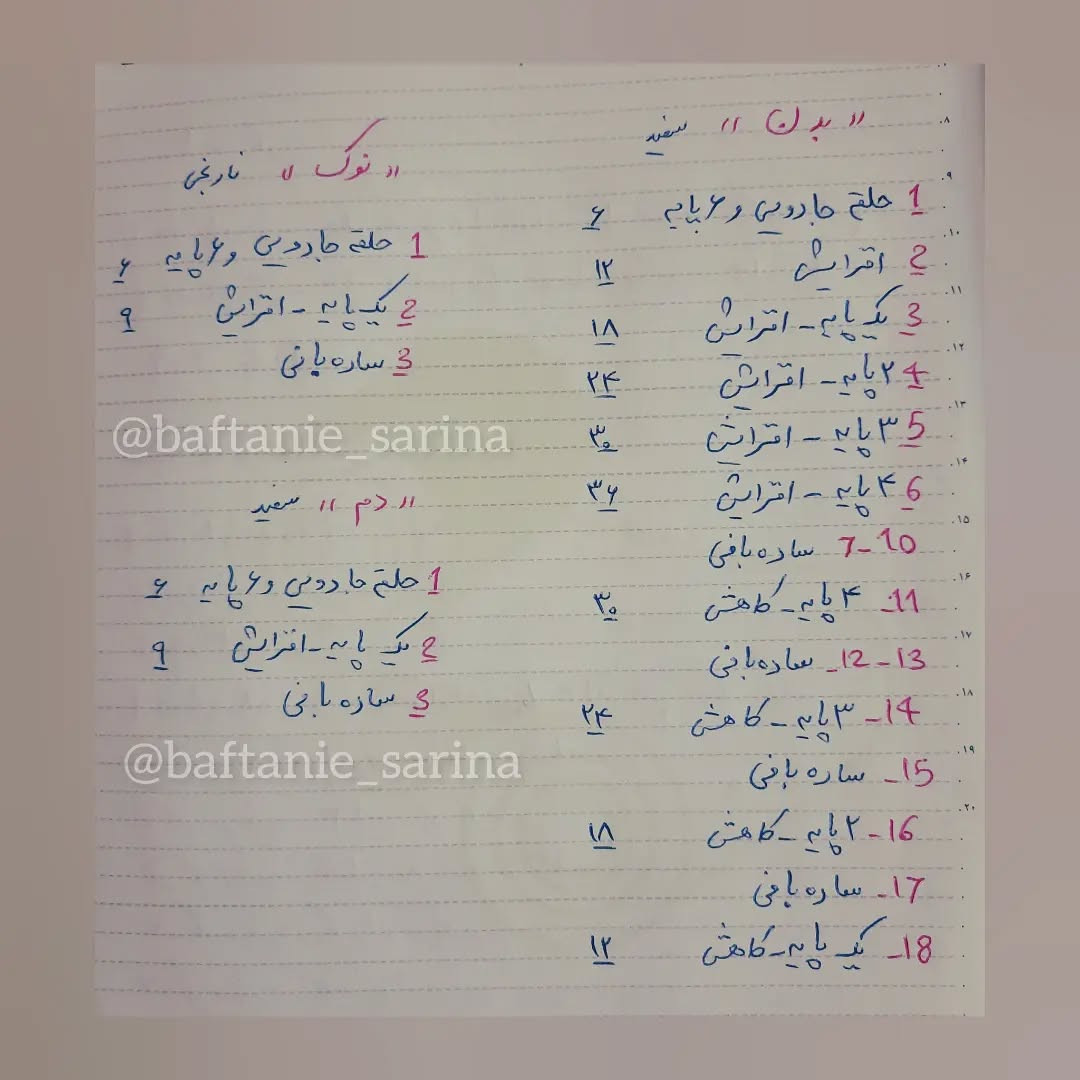 "بدن" سفید
1 حلقه جادویی و ۶ پایه ۶
2 افزایش ۱۲
3 یک پایه - افزایش ۱۸
4 ۲ پایه - افزایش ۲۴
5 ۳ پایه - افزایش ۳۰
6 ۴ پایه - افزایش ۳۶
7-10 ساده بافی
11- ۴ پایه - کاهش ۳۰
12-13- ساده بافی
14- ۳ پایه - کاهش ۲۴
15- ساده بافی
16- ۲ پایه - کاهش ۱۸
17- ساده بافی
18- یک پایه - کاهش ۱۲
"نوک" نارنجی
1 حلقه جادویی و ۶ پایه ۶
2 یک پایه - افزایش ۹
3 ساده بافی
@baftanie_sarina
"دم" سفید
1 حلقه جادویی و ۶ پایه ۶
2 یک پایه - افزایش ۹
3 ساده بافی
@baftanie_sarina
۸
۹
۱۰
۱۱
۱۲
۱۳
۱۴
۱۵
۱۶
۱۷
۱۸
۱۹
۲۰